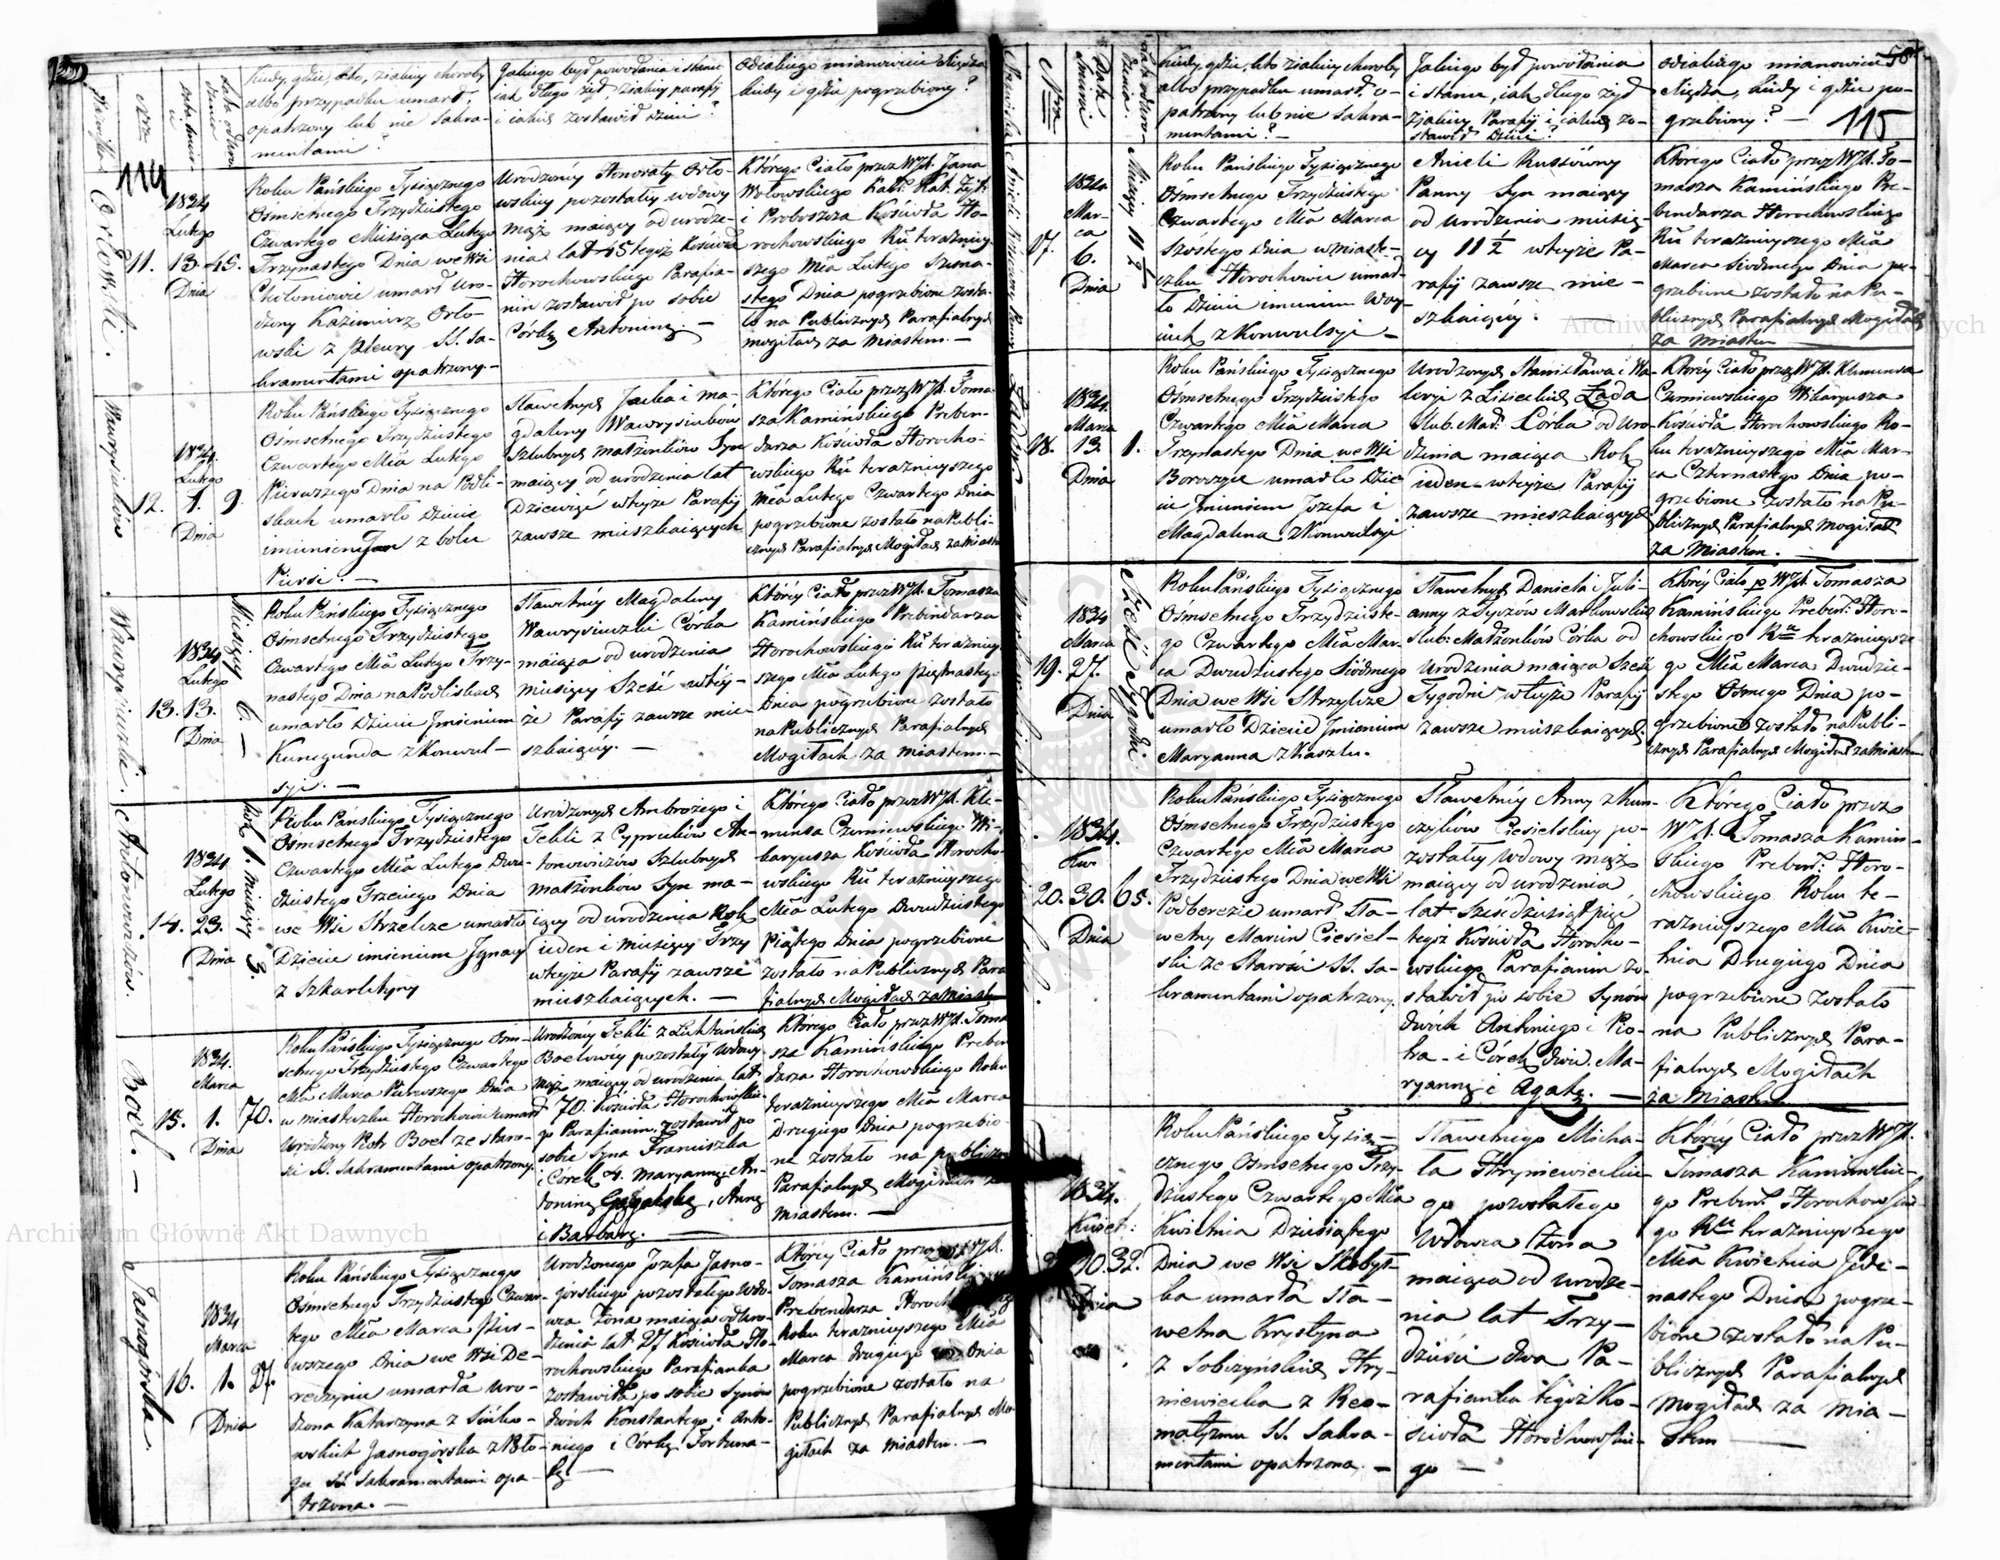 114
Kiedy, gdzie, kto, z jakiey choroby
albo przypadku umarł,
opatrzony lub nie Sakra-
mentami?
Jakiego był powołania i stanu
iak długo żył, z jakiey parafij
i iakie zostawił dzieci?
Od jakiego mianowicie Xiędza
kiedy i gdzie pogrzebiony?
Orłowski.
11.
1834
Lutego
13.
Dnia
45.
Roku Pańskiego Tysiącznego
Ośmsetnego Trzydziestego
Czwartego Miesiąca Lutego
Trzynastego Dnia we Wsi
Chołoniowie umarł Uro-
dzony Kazimierz Orło-
wski z pleury SS. Sa-
kramentami opatrzony. —
Urodzoney Honoraty Orło-
wskiey pozostałey wdowy
mąż maiący od urodze-
nia lat 45 tegoż Kościoła
Horochowskiego Parafia-
nin zostawił po sobie
Corkę Antoninę. —
Którego Ciało przez WJX. Jana
Wołowskiego Kan. Kat. Żyt.
i Proboszcza Kościoła Ho-
rochowskiego Ru teraźniey-
szego Mca Lutego Szesna-
stego Dnia pogrzebione zosta-
ło na Publicznych Parafialnych
mogiłach za Miastem. —
12.
1834.
Lutego
1.
Dnia
9.
Roku Pańskiego Tysiącznego
Ośmsetnego Trzydziestego
Czwartego Mca Lutego
Pierwszego Dnia na Podli-
skach umarło Dziecie
imieniem Jan z bolu
Piersi. —
Sławetnych Jacka i Ma-
gdaleny Wawrysiuków
Szlubnych małżonków Syn
maiący od urodzenia lat
Dziewięć w teyże Parafij
zawsze mieszkaiących
Którego Ciało przez WJX. Toma-
sza Kamińskiego Preben-
darza Kościoła Horocho-
wskiego Ru teraźnieyszego
Mca Lutego Czwartego Dnia
pogrzebione zostało na Publi-
cznych Parafialnych Mogiłach za Miastem
13.
1834
Lutego
13.
Dnia
Miesięcy 6. —
Roku Pańskiego Tysiącznego
Ośmsetnego Trzydziestego
Czwartego Mca Lutego Trzy-
nastego Dnia na Podliskach
umarło Dziecie Imieniem
Kunegunda z Konwul-
syi. —
Sławetney Magdaleny
Wawrysiuczki Corka
maiąca od urodzenia
miesięcy Sześć w tey-
że Parafij zawsze mie-
szkaiącey. —
Którey Ciało przez WJX. Tomasza
Kamińskiego Prebendarza
Horochowskiego Ru teraźniey-
szego Mca Lutego Piętnastego
Dnia pogrzebione zostało
na Publicznych Parafialnych
Mogiłach za miastem. —
Antonowiczów.
14.
1834.
Lutego
23.
Dnia
Rok 1. miesięcy 3.
Roku Pańskiego Tysiącznego
Ośmsetnego Trzydziestego
Czwartego Mca Lutego Dwu-
dziestego Trzeciego Dnia
we Wsi Strzelcze umarło
Dziecie imieniem Ignacy
z Szkarlatyny
Urodzonych Ambrożego i
Tekli z Cypruków An-
tonowiczów Szlubnych
małżonków Syn ma-
iący od urodzenia Rok
ieden i miesięcy Trzy
w teyże Parafij zawsze
mieszkaiących. —
Którego Ciało przez WJX. Kle-
mensa Czerniewskiego Wi-
karyusza Kościoła Horocho-
wskiego Ru teraźnieyszego
Mca Lutego Dwudziestego
Piątego Dnia pogrzebione
zostało na Publicznych Para
fialnych Mogiłach za Miastem
Boel. —
15.
1834.
Marca
1.
Dnia
70.
Roku Pańskiego Tysiącznego Ośm-
setnego Trzydziestego Czwartego
Mca Marca Pierwszego Dnia
w miasteczku Horochowie umarł
Urodzony Piotr Boel ze staro-
ści SS. Sakramentami opatrzony.
Urodzoney Tekli z
Boelowey pozostałey wdowy
mąż maiący od urodzenia lat
70. Kościoła Horochowskie-
go Parafianin. zostawił po
sobie Syna Franciszka
i Córek 4. Maryannę, An-
toninę, Annę
i Barbarę. —
Którego Ciało przez WJX. Toma
sza Kamińskiego Preben
darza Horochowskiego Roku
teraźnieyszego Mca Marca
Drugiego Dnia pogrzebio-
ne zostało na publicznych
Parafialnych Mogiłach za
miastem. —
Jasnogórska.
16.
1834
Marca
1.
Dnia
27.
Roku Pańskiego Tysiącznego
Ośmsetnego Trzydziestego Czwar-
tego Mca Marca Pier-
wszego Dnia we Wsi De-
reczynie umarła Uro-
dzona Katarzyna z Sinke-
wskich Jasnogórska z
SS. Sakramentami opa-
trzona. —
Urodzonego Józefa Jasno-
górskiego pozostałego wdo-
wca Żona maiąca od Uro-
dzenia lat 27 Kościoła Ho-
rochowskiego Parafianka
zostawiła po sobie Synów
dwóch Konstantego i Anto-
niego i Córkę Fortuna-
tę —
Którey Ciało przez WJX.
Tomasza Kamińskiego
Prebendarza Horochowskiego
Roku teraźnieyszego Mca
Marca drugiego Dnia
pogrzebione zostało na
Publicznych Parafialnych Mo-
giłach za miastem. —
58
115
Nra
Data
Śmierci
Kiedy, gdzie, kto z jakiey choroby
albo przypadku umarł, o-
patrzony lub nie Sakra-
mentami? —
Jakiego był powołania
i stanu, iak długo żył
z jakiey Parafij i iakie zo-
stawił Dzieci?
Od jakiego mianowicie
Xiędza, kiedy i gdzie po-
grzebiony? —
17.
1834
Mar-
ca
6.
Dnia
Miesięcy 11 ½
Roku Pańskiego Tysiącznego
Ośmsetnego Trzydziestego
Czwartego Mca Marca
Szóstego Dnia w miaste-
czku Horochowie umar-
ło Dziecie imieniem Woy-
ciech z Konwulsyi —
Anieli Russówny
Panny Syn maiący
od urodzenia miesię-
cy 11 ½ w teyże Pa-
rafij zawsze mie-
szkaiącey. —
Którego Ciało przez WJX. To-
masza Kamińskiego Pre-
bendarza Horochowskiego
Ru teraźnieyszego Mca
Marca Siódmego Dnia po-
grzebione zostało na Pu-
blicznych Parafialnych Mogiłach
za Miastem
18.
1834.
Marca
13.
Dnia
1.
Roku Pańskiego Tysiącznego
Ośmsetnego Trzydziestego
Czwartego Mca Marca
Trzynastego Dnia we Wsi
Boroczyce umarło Dzie-
cie Imieniem Józefa i
Magdalena z Konwulsyi
Urodzonych Stanisława i Wa-
leryi z Lisieckich Łada
Slub. Mał. Córka od Uro-
dzenia maiąca Rok
ieden w teyże Parafij
zawsze mieszkaiących
Którey Ciało przez WJX. Klemensa
Czerniewskiego Wikaryusza
Kościoła Horochowskiego Ro-
ku teraźnieyszego Mca Mar-
ca Czternastego Dnia po-
grzebione zostało na Pu-
blicznych Parafialnych Mogiłach
za Miastem. —
19.
1834
Marca
27.
Dnia
Sześć Tygodni
Roku Pańskiego Tysiącznego
Ośmsetnego Trzydzieste-
go Czwartego Mca Mar-
ca Dwudziestego Siódmego
Dnia we Wsi Strzylcze
umarło Dziecie Imieniem
Maryanna z Kaszlu.
Sławetnych Daniela i Juli-
anny z Tyczów Markowskich
slub: Małżonków Córka od
Urodzenia maiąca Sześć
Tygodni w teyże Parafij
zawsze mieszkaiących.
Którey Ciało p WJX. Tomasza
Kamińskiego Preben. Horo-
chowskiego Ru teraźnieysze-
go Mca Marca Dwudzie-
stego Osmego Dnia po-
grzebione zostało na Publi-
cznych Parafialnych Mogiłach za Miastem
20.
1834.
30.
Dnia
65.
Roku Pańskiego Tysiącznego
Ośmsetnego Trzydziestego
Czwartego Mca Marca
Trzydziestego Dnia we Wsi
Podberezie umarł Sła-
wetny Marcin Ciesiel-
ski ze Starości SS. Sa-
kramentami opatrzony.
Sławetney Anny z Kun-
czyków Ciesielskiey po-
zostałey Wdowy mąż
maiący od urodzenia
lat Sześćdziesiąt pięć
tegoż Kościoła Horocho-
wskiego Parafianin zo-
stawił po sobie Synów
dwóch Antoniego i Pio-
tra i Córek dwie. Ma-
ryannę i Agatę. —
Którego Ciało przez
WJX. Tomasza Kamin-
skiego Preben. Horo-
chowskiego Roku te-
raźnieyszego Mca Kwie-
tnia Drugiego Dnia
pogrzebione zostało
na Publicznych Para-
fialnych Mogiłach
za Miastem
1834.
Kwiet:
10.
Dnia
32.
Roku Pańskiego Tysią-
cznego Ośmsetnego Trzy-
dziestego Czwartego Mca
Kwietnia Dziesiątego
Dnia we Wsi Skobył-
ka umarła Sła-
wetna Krystyna
z Sobczyńskich Hry-
niewiecka z Reo-
matyzmu SS. Sakra-
mentami opatrzona. —
Sławetnego Micha-
ła Hryniewieckie-
go pozostałego
Wdowca Żona
maiąca od urodze-
nia lat Trzy-
dzieści dwa Pa-
rafianka tegoż Ko-
ścioła Horochowskie-
go —
Którey Ciało przez WJX.
Tomasza Kamińskie-
go Preben. Horochowskie-
go Ru teraźnieyszego
Mca Kwietnia Jede-
nastego Dnia pogrze-
bione zostało na Pu-
blicznych Parafialnych
Mogiłach za Mia-
stem —
Archiwum Główne Akt Dawnych
Archiwum Główne Akt Dawnych